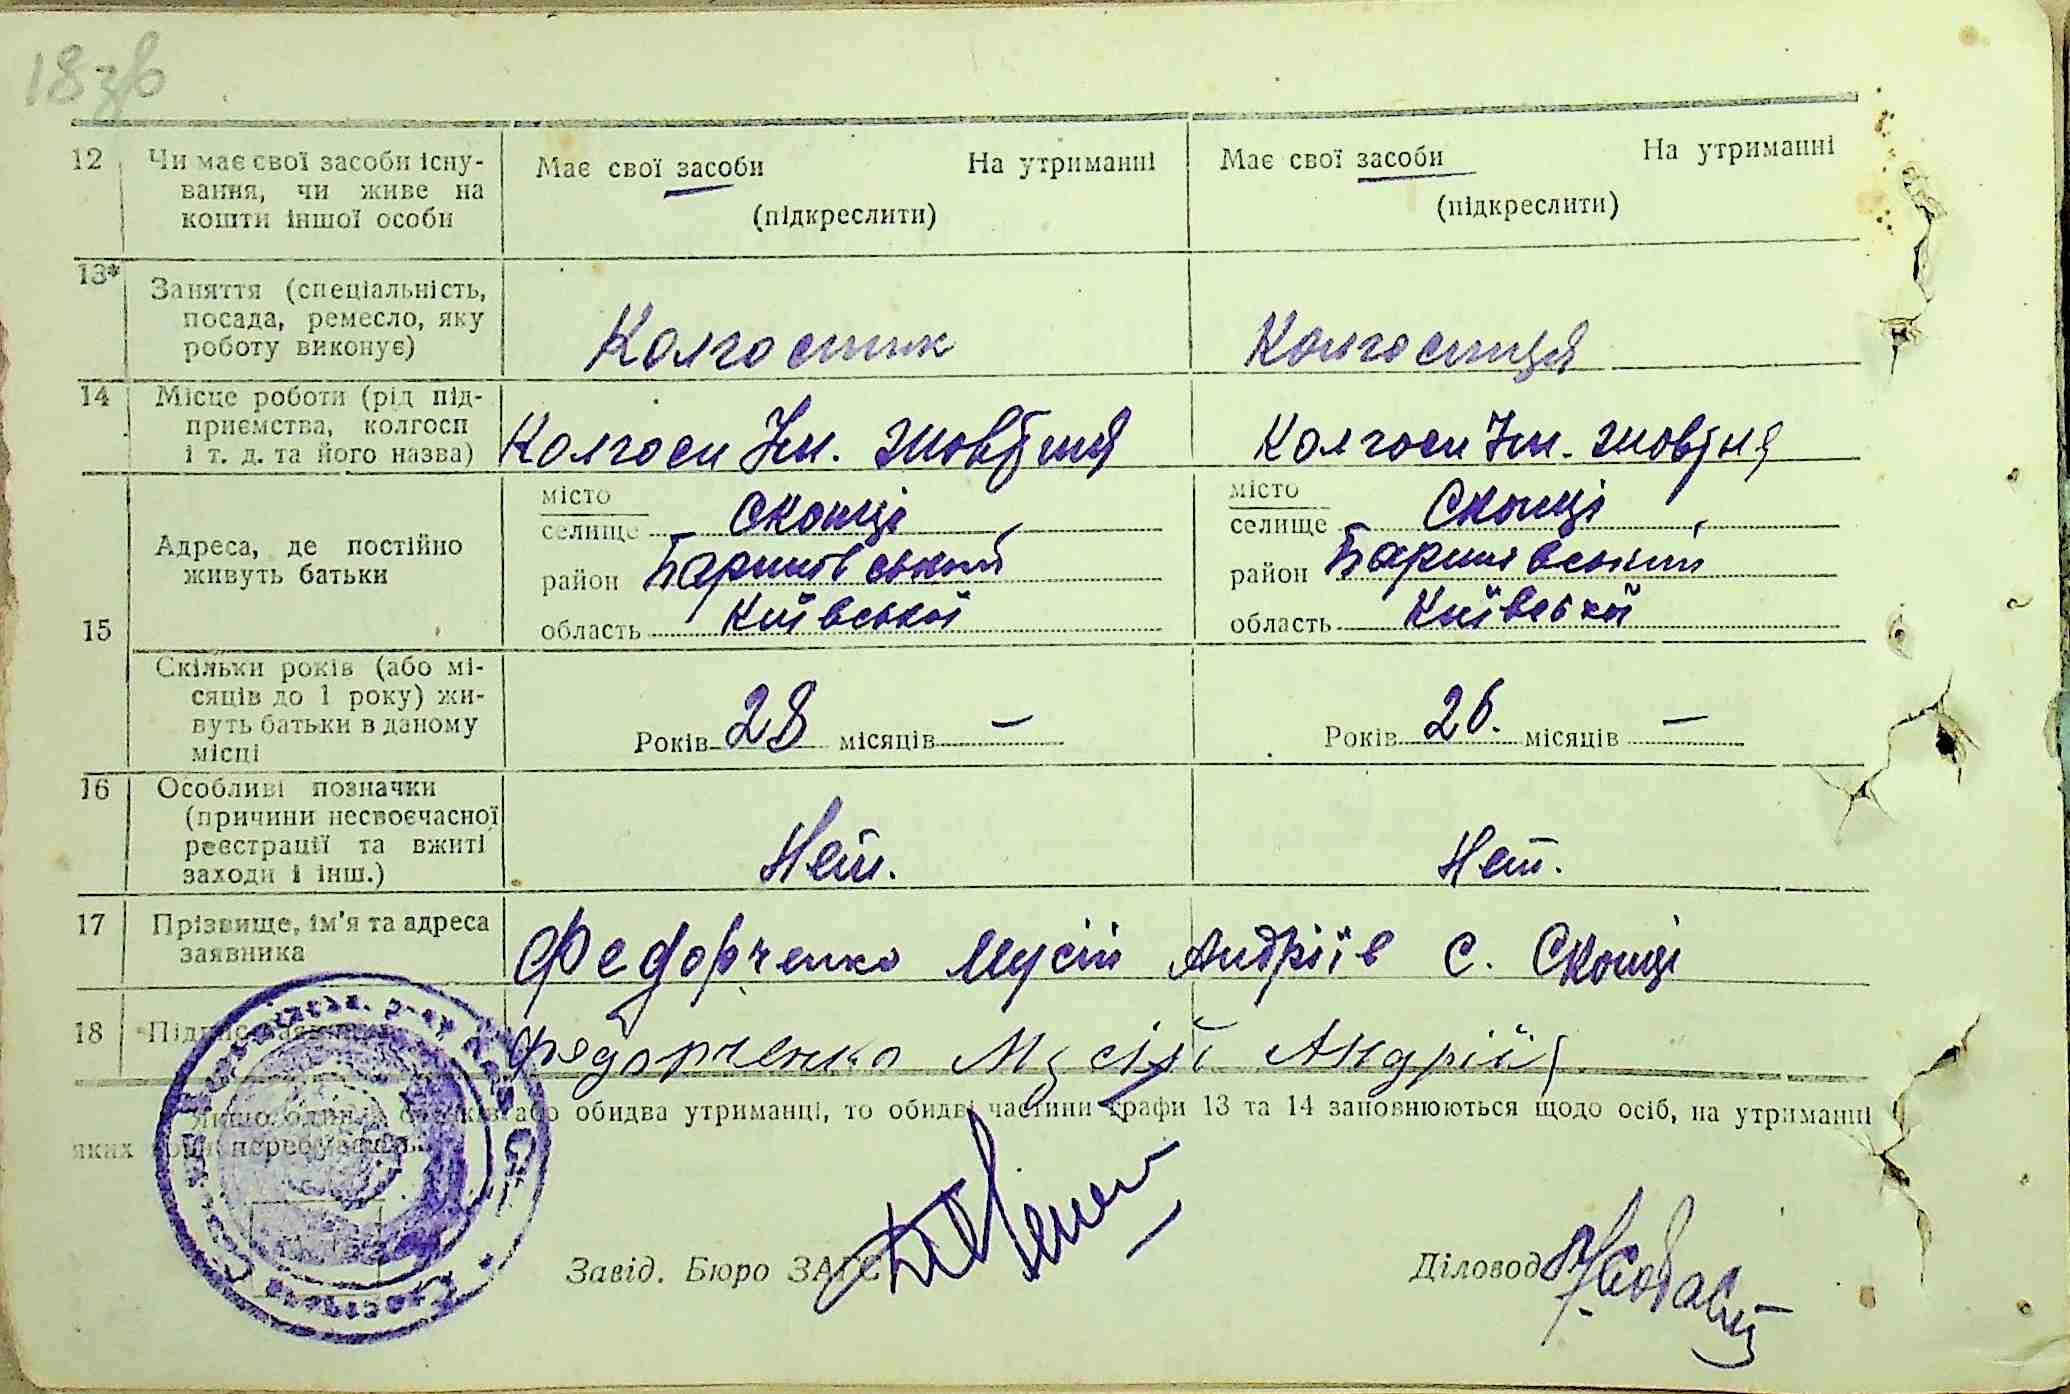 18 зв
12 Чи має свої засоби існу- Має свої засоби На утриманні Має свої засоби На утриманні
вання, чи живе на
кошти іншої особи (підкреслити) (підкреслити)
13*
Заняття (спеціальність,
посада, ремесло, яку
роботу виконує) Колгоспник Колгоспниця
14 Місце роботи (рід під-
приємства, колгосп
і т. д. та його назва) Колгосп Ім. Жовтня Колгосп Ім. Жовтня
місто місто
селище Скопці селище Скопці
Адреса, де постійно
живуть батьки район Баришівський район Баришівський
15 область Київської область Київської
Скільки років (або мі-
сяців до 1 року) жи-
вуть батьки в даному
місці Років 28 місяців — Років 26. місяців —
16 Особливі позначки
(причини несвоєчасної
реєстрації та вжиті
заходи і інш.) Нет. Нет.
17 Прізвище, ім'я та адреса
заявника Федорченко Мусій Андріїв с. Скопці
18 Підпис заявника Федорченко Мусій Андрій
Якщо один з батьків або обидва утриманці, то обидві частини графи 13 та 14 заповнюються щодо осіб, на утриманні
яких вони перебувають.
Завід. Бюро ЗАГС Діловод